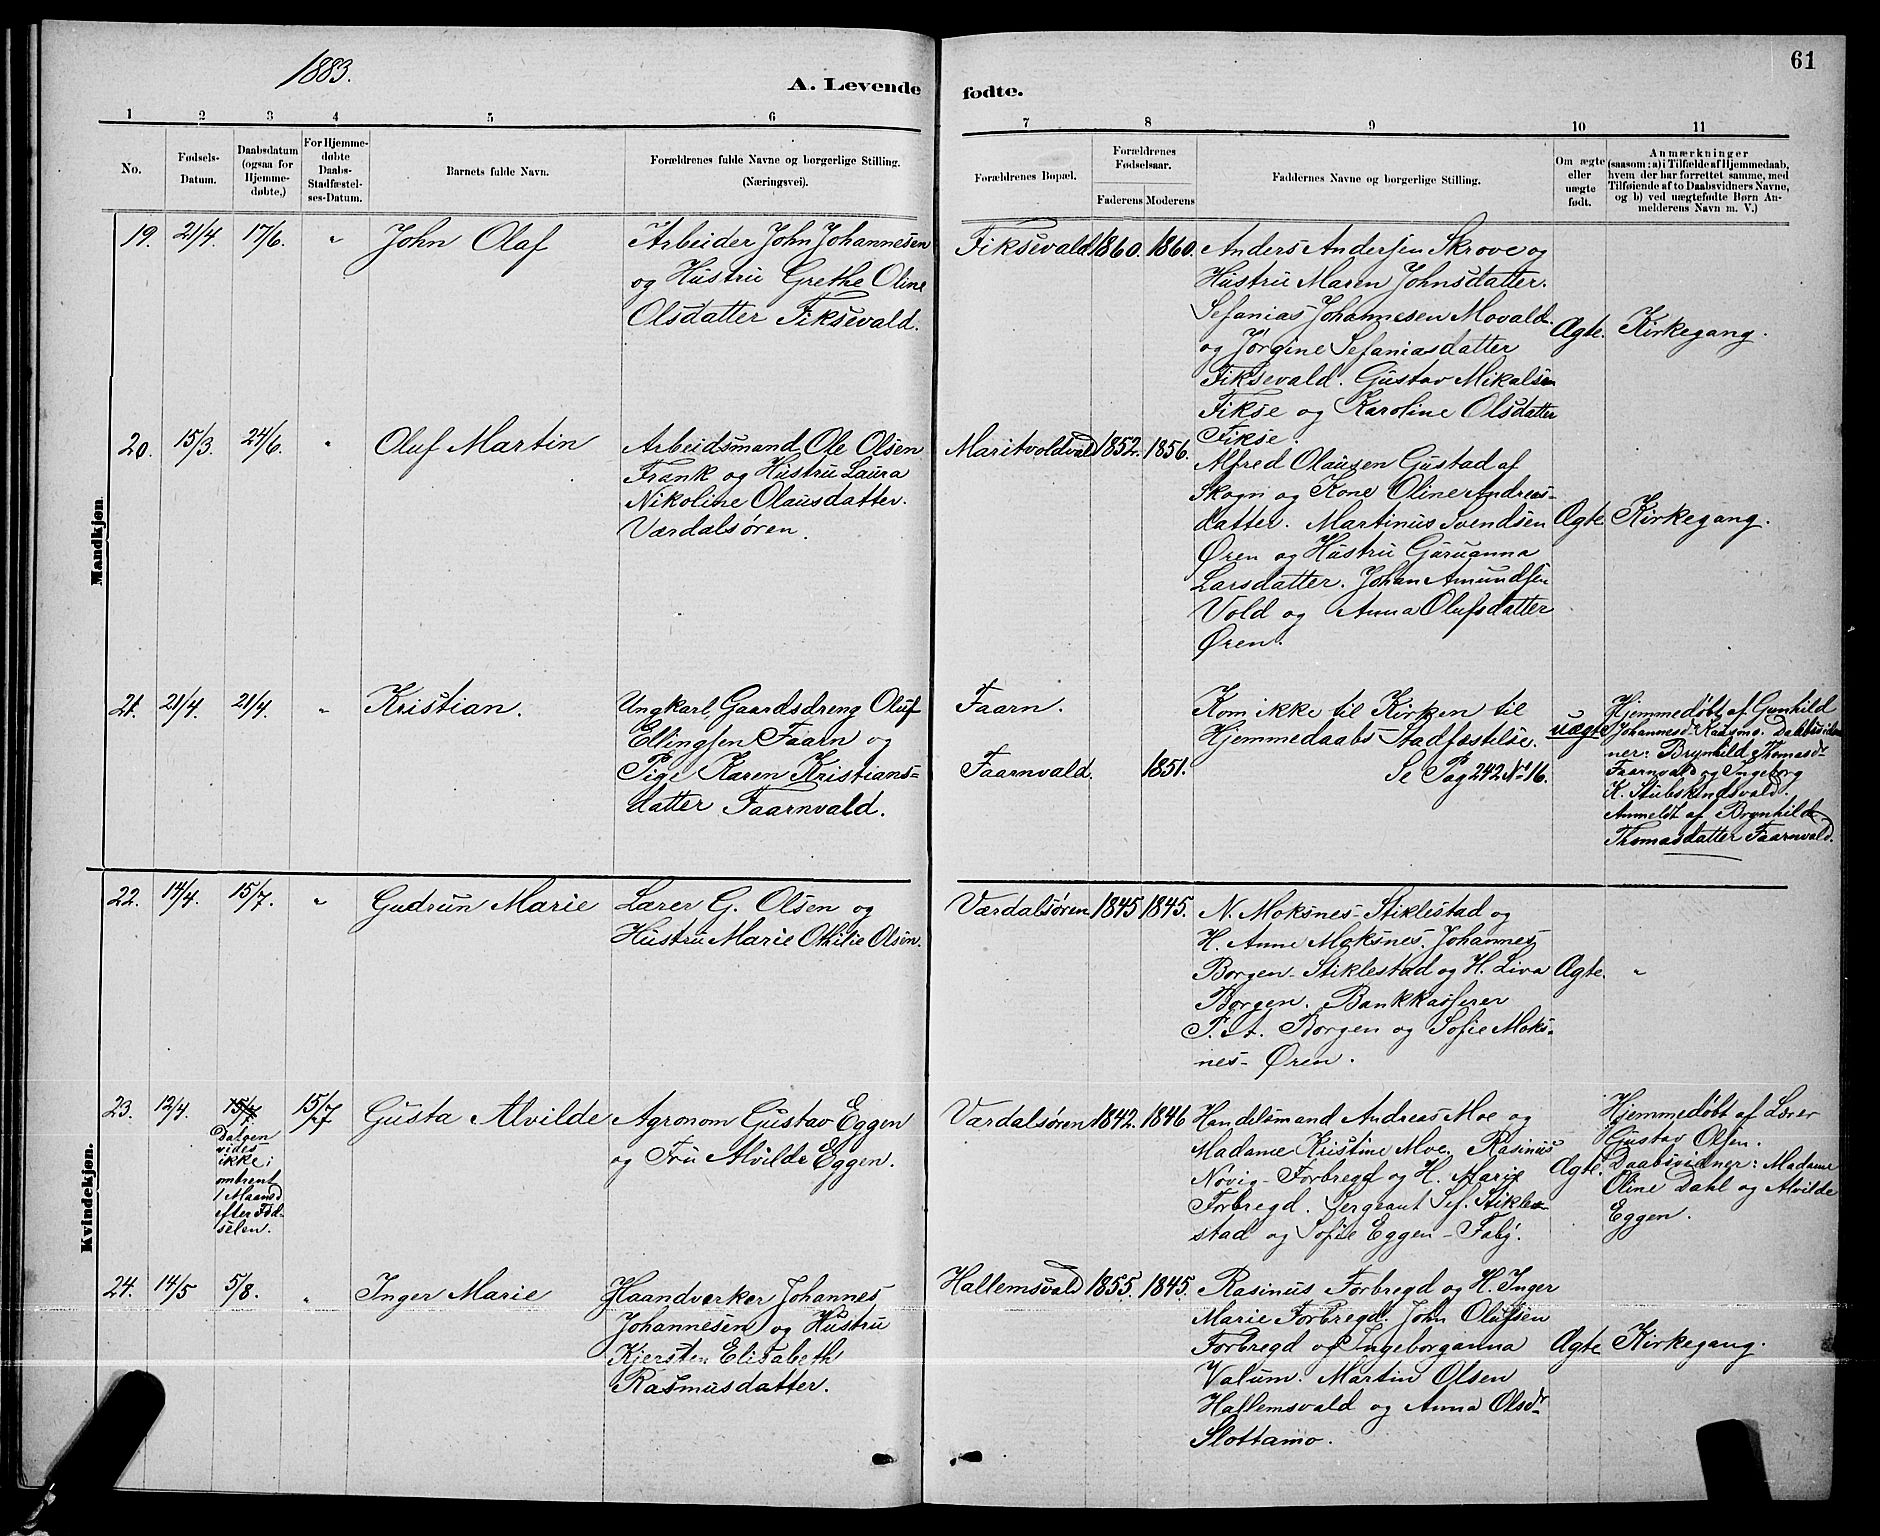 1883.
A. Levende fødte.
61
1 2 3 4 5 6 7 8 9 10 11
No.
Fødsels-
Datum.
Daabsdatum
(ogsaa for
Hjemme-
døbte,)
For Hjemme-
døbte
Daabs-
Stadfæstel-
ses-Datum.
Barnets fulde Navn.
Forældrenes fulde Navne og borgerlige Stilling.
(Næringsvei).
Forældrenes Bopæl.
Forældrenes
Fødselsaar.
Faderens Moderens
Faddernes Navne og borgerlige Stilling.
Om ægte
eller
uægte
født.
Anmærkninger
(saasom: a) i Tilfælde af Hjemmedaab,
hvem der har forrettet samme, med
Tilføiende af to Daabsvidners Navne,
og b) ved uægtefødte Børn An-
melderens Navn m. V.)
Mandkjøn.
19. 21/4. 17/6. " John Olaf
Arbeider John Johannesen
og Hustru Grethe Oline
Olsdatter Fiksevald.
Fiksevald 1860. 1860.
Anders Andersen Skrove og
Hustru Maren Johnsdatter.
Sefanias Johannesen Movald
og Jørgine Sefaniasdatter
Fiksevald. Gustav Mikalsen
Fikse og Karoline Olsdatter
Fikse.
Ægte. Kirkegang.
20. 15/3. 24/6. " Oluf Martin
Arbeidsmand Ole Olsen
Frank og Hustru Laura
Nikoline Olausdatter.
Værdalsøren.
Maritvoldvald 1852. 1856.
Alfred Olausen Gustad af
Skogn og Kone Oline Andreas-
datter. Martinus Svendsen
Øren og Hustru Guruanna
Larsdatter. Johan Amundsen
Vold og Anna Olufsdatter
Øren.
Ægte Kirkegang.
21. 21/4. 21/4. " Kristian.
Ungkarl, Gaardsdreng Oluf
Ellingsen Faarn og
Pige Karen Kristians-
datter Faarnvald.
Faarn.
Faarnvald. 1851.
Kom ikke til Kirken til
Hjemmedaabs-Stadfæstelse.
Se Pag 242 No 16.
uægte
Hjemmedøbt af Gunhild
Johannesd. . Daabsvid-
ner: Brynhild Thomasdr
Faarnvald og Ingeborg
K. Stubskindsvald.
Anmeldt af Brynhild
Thomasdatter Faarnvald.
Kvindekjøn.
22. 14/4. 15/7. " Gudrun Marie
Lærer G. Olsen og
Hustru Marie Othilie Olsen.
Værdalsøren 1845 1845.
N. Moksnes-Stiklestad og
H. Anne Moksnes. Johannes
Borgen-Stiklestad og H. Liva
Borgen. Bankkasserer
P. A. Borgen og Sofie Moks-
nes-Øren.
Ægte. "
23. 12/4. 15/7. 15/7 Gusta Alvilde
Dalgen
vides
ikke;
omtrent
1 Maaned
efter Fød-
selen.
Agronom Gustav Eggen
og Fru Alvilde Eggen.
Værdalsøren 1842. 1846
Handelsmand Andreas Moe og
Madame Kristine Moe. Rasinus
Nøvig-Forbregd og H. Marie
Forbregd. Sergeant Sef. Stikle-
stad og Sofie Eggen-Fæby.
Ægte.
Hjemmedøbt af Lærer
Gustav Olsen.
Daabsvidner: Madame
Oline Dahl og Alvilde
Eggen.
24. 14/5 5/8. " Inger Marie
Haandverker Johannes
Johannesen og Hustru
Kjersten Elisabeth
Rasmusdatter.
Hallemsvald 1855. 1845.
Rasinus Forbregd og H. Inger
Marie Forbregd. John Olufsen
Forbregd og Ingeborganna
Valum. Martin Olsen
Hallemsvald og Anna Olsdr
Slottamo.
Ægte Kirkegang.